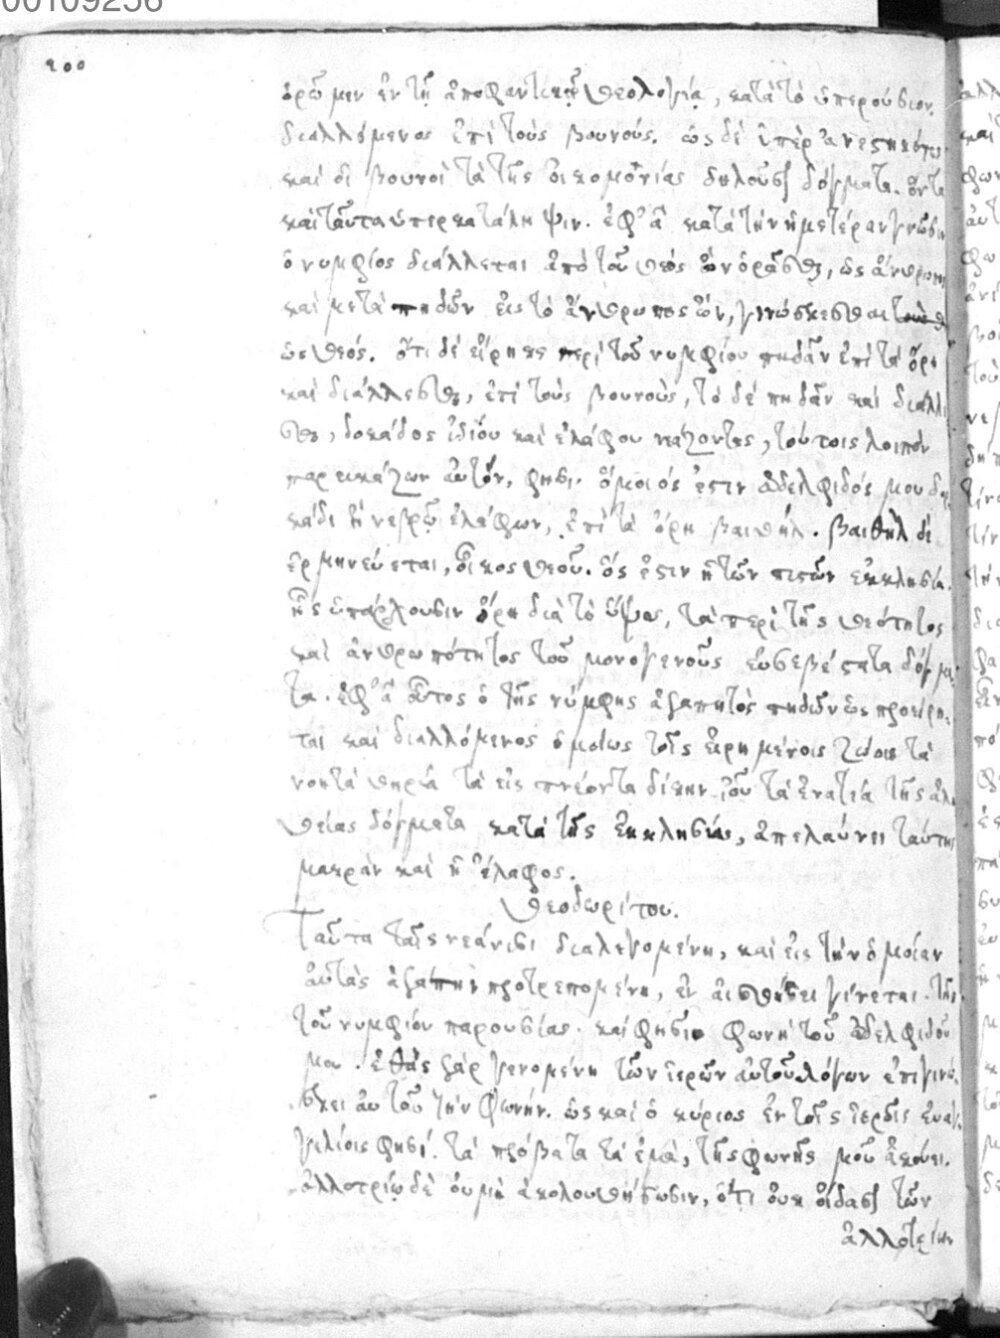 00109256
ὁρῶμεν ἐν τῇ ἀποφαντικῇ θεολογίᾳ, κατὰ τὸ ὑπερούσιον.
διαλλόμενος ἐπὶ τοὺς βουνούς. ὡς δὲ ὑπεραν
καὶ οἱ βουνοὶ τὰ τῆς οἰκομονίας δηλοῦσι δόγματα. ὄντα
καὶ ταῦτα ὑπερκατάληψιν. ἐφ' ἃ κατὰ τὴν ἡμετέραν γνῶσιν
ὁ νυμφίος διάλλεται ἀπὸ τοῦ θεὸς ὢν ὁρᾶσθαι, ὡς ἄνθρωπος
καὶ μεταπηδῶν εἰς τὸ ἄνθρωπος ὤν, γινώσκεσθαι
ὡς θεός. ὅτι δὲ εἴρηκε περὶ τοῦ νυμφίου πηδᾶν ἐπὶ τὰ ὄρη
καὶ διάλλεσθαι, ἐπὶ τοὺς βουνοὺς, τὸ δὲ πηδᾶν καὶ διάλλε
σθαι, δοκάδος ἰδίου καὶ ἐλάφου νεάζοντος, τούτοις λοιπὸν
παρεικάζων αὐτόν, φησι. ὅμοιός ἐστιν ἀδελφιδός μου δορ
κάδι ἢ νεβρῷ ἐλάφων, ἐπὶ τὰ ὄρη βαιθήλ. βαιθὴλ δὲ
ἑρμηνεύεται, οἶκος θεοῦ. ὅς ἐστιν ἡ τῶν πιστῶν ἐκκλησία.
ἧς ὑπάρχουσιν ὄρη διὰ τὸ ὕψος, τὰ περὶ τῆς θεότητος
καὶ ἀνθρωπότητος τοῦ μονογενοῦς εὐσεβέστατα δόγμα
τα. ἐφ' ἃ οὗτος ὁ τῆς νύμφης ἀγαπητὸς πηδῶν ὡς προείρη
ται καὶ διαλλόμενος ὁμοίως τοῖς εἰρημένοις ζώοις τὰ
νοητὰ θηρία τὰ εἰσπνέοντα δίκην ἰοῦ τὰ ἐναντία τῆς ἀλη
θείας δόγματα κατὰ τῆς ἐκκλησίας, ἀπελαύνει ταύτης
μακρὰν καὶ ἡ ἔλαφος.
Θεοδωρίτου.
Ταῦτα ταῖς νεάνισι διαλεγομένη, καὶ εἰς τὴν ὁμοίαν
αὐτὰς ἀγάπην προτρεπομένη, ἐν αἰσθήσει γίνεται. τῆς
τοῦ νυμφίου παρουσίας. καί φησι φωνὴ τοῦ ἀδελφιδοῦ
μου. ἐθὰς γὰρ γενομένη τῶν ἱερῶν αὐτοῦ λόγων ἐπιγινώ
σκει αὐτοῦ τὴν φωνήν. ὡς καὶ ὁ κύριος ἐν τοῖς ἱεροῖς εὐαγ
γελίοις φησί. τὰ πρόβατα τὰ ἐμὰ, τῆς φωνῆς μοῦ ἀκούει.
ἀλλοτρίῳ δὲ οὐ μὴ ἀκολουθήσωσιν, ὅτι οὐκ οἴδασι τῶν
ἀλλοτρίων